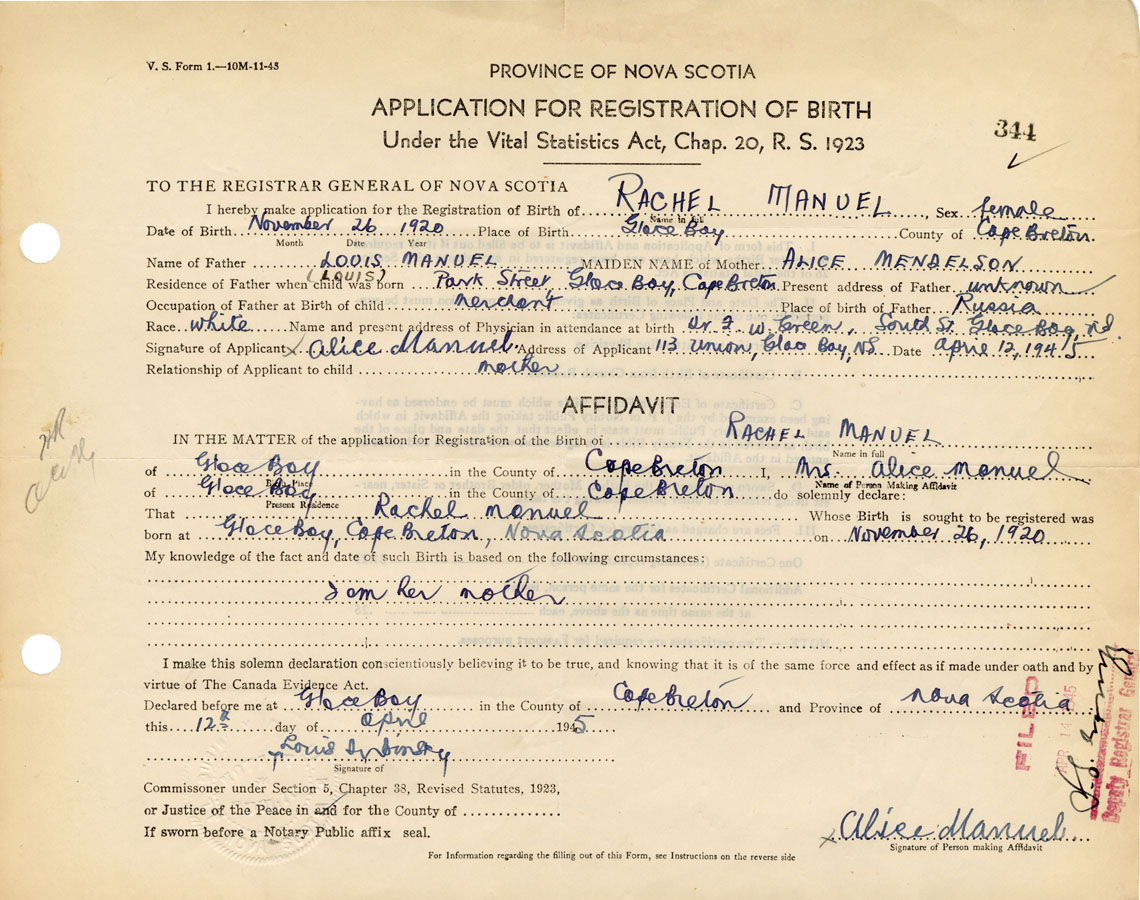 V. S. Form 1.—10M-11-43
PROVINCE OF NOVA SCOTIA
APPLICATION FOR REGISTRATION OF BIRTH
344
Under the Vital Statistics Act, Chap. 20, R. S. 1923
TO THE REGISTRAR GENERAL OF NOVA SCOTIA
I hereby make application for the Registration of Birth of RACHEL MANUEL, Sex female
Name in full
Date of Birth November 26 1920 Place of Birth Glace Bay County of Cape Breton.
Month Date Year
Name of Father LOUIS MANUEL MAIDEN NAME of Mother ALICE MENDELSON
(LOUIS)
Residence of Father when child was born Park Street, Glace Bay, Cape Breton Present address of Father unknown
Occupation of Father at Birth of child merchant Place of birth of Father Russia
Race white Name and present address of Physician in attendance at birth Dr. F. W. Green, South St. Glace Bay, N.S.
Signature of Applicant x Alice Manuel Address of Applicant 113 Union, Glace Bay, NS Date April 12, 1945
Relationship of Applicant to child mother
AFFIDAVIT
IN THE MATTER of the application for Registration of the Birth of RACHEL MANUEL
Name in full
of Glace Bay in the County of Cape Breton I, Mrs. Alice Manuel
Birth Place Name of Person Making Affidavit
of Glace Bay in the County of Cape Breton do solemnly declare:
Present Residence
That Rachel Manuel Whose Birth is sought to be registered was
born at Glace Bay, Cape Breton, Nova Scotia on November 26, 1920
My knowledge of the fact and date of such Birth is based on the following circumstances:
I am her mother
I make this solemn declaration conscientiously believing it to be true, and knowing that it is of the same force and effect as if made under oath and by
virtue of The Canada Evidence Act.
Declared before me at Glace Bay in the County of Cape Breton and Province of Nova Scotia
this 12th day of April 1945
Louis
Signature of
Commissoner under Section 5, Chapter 38, Revised Statutes, 1923,
or Justice of the Peace in and for the County of
If sworn before a Notary Public affix seal.
x Alice Manuel
Signature of Person making Affidavit
For Information regarding the filling out of this Form, see Instructions on the reverse side
FILED
APR 14 1945
Deputy Registrar General